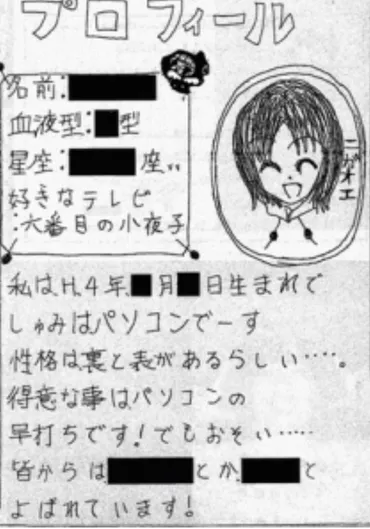 プロフィール
名前:
血液型: 型
星座: 座..
好きなテレビ
:六番目の小夜子
ニガオエ
私はH.4年 月 日生まれで
しゅみはパソコンでーす
性格は裏と表があるらしい….。
得意な事はパソコンの
早打ちです!でもおそい……
皆からは とか とよばれています!